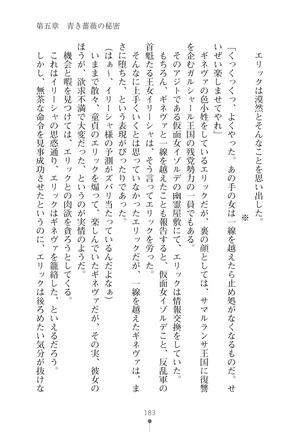 第五章　青き薔薇の秘密
エリックは漠然とそんなことを思い出した。
※
「くっくっくっ、よくやった。あの手の女は一線を越えたら止め処がなくなるものだ。せ
いぜい楽しませてやれ」
ギネヴァの色小姓をしているエリックだが、裏の顔としては、サマルランサ王国に復讐
を企むガルシャール王国の残党勢力の一員でもある。
そのアジトである仮面女イゾルデの幽霊屋敷にて、エリックは情報交換をしていた。
もちろん、ギネヴァと一線を越えたことも報告すると、仮面女イゾルデこと、反乱軍の
首魁たる王女イリーシャは手を打って笑った。
そんなに上手くいくとは思っていなかったエリックだが、一線を越えたギネヴァは、ま
さに堕ちた、という表現がぴったりであった。
（あぁ、イリーシャ様の予測がズバリ当たっているんだよなぁ）
いままで散々、童貞のエリックを煽って、楽しんでいたギネヴァだが、その実、彼女の
ほうが、欲求不満で大変だった、というのが実情のようだ。
機会と暇を見つけては、エリックとの肉欲を貪ろうとしてくる。
しかし、無茶な命令を見事成功させたというのに、エリックは後ろめたい気分が抜けな
イリーシャの思惑通り、エリックはギネヴァを籠絡した、といえるだろう。
183